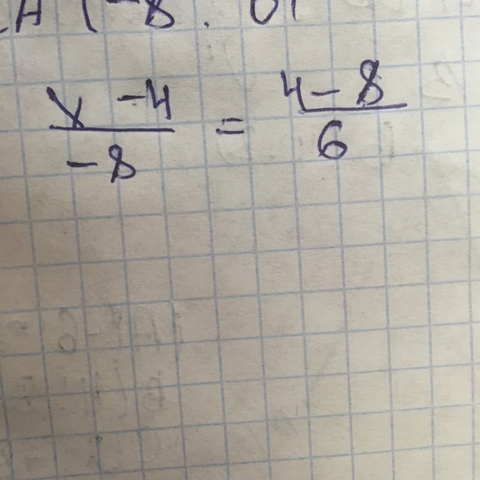 A (-8 . 6)
x - 4 / -8 = 4 - 8 / 6